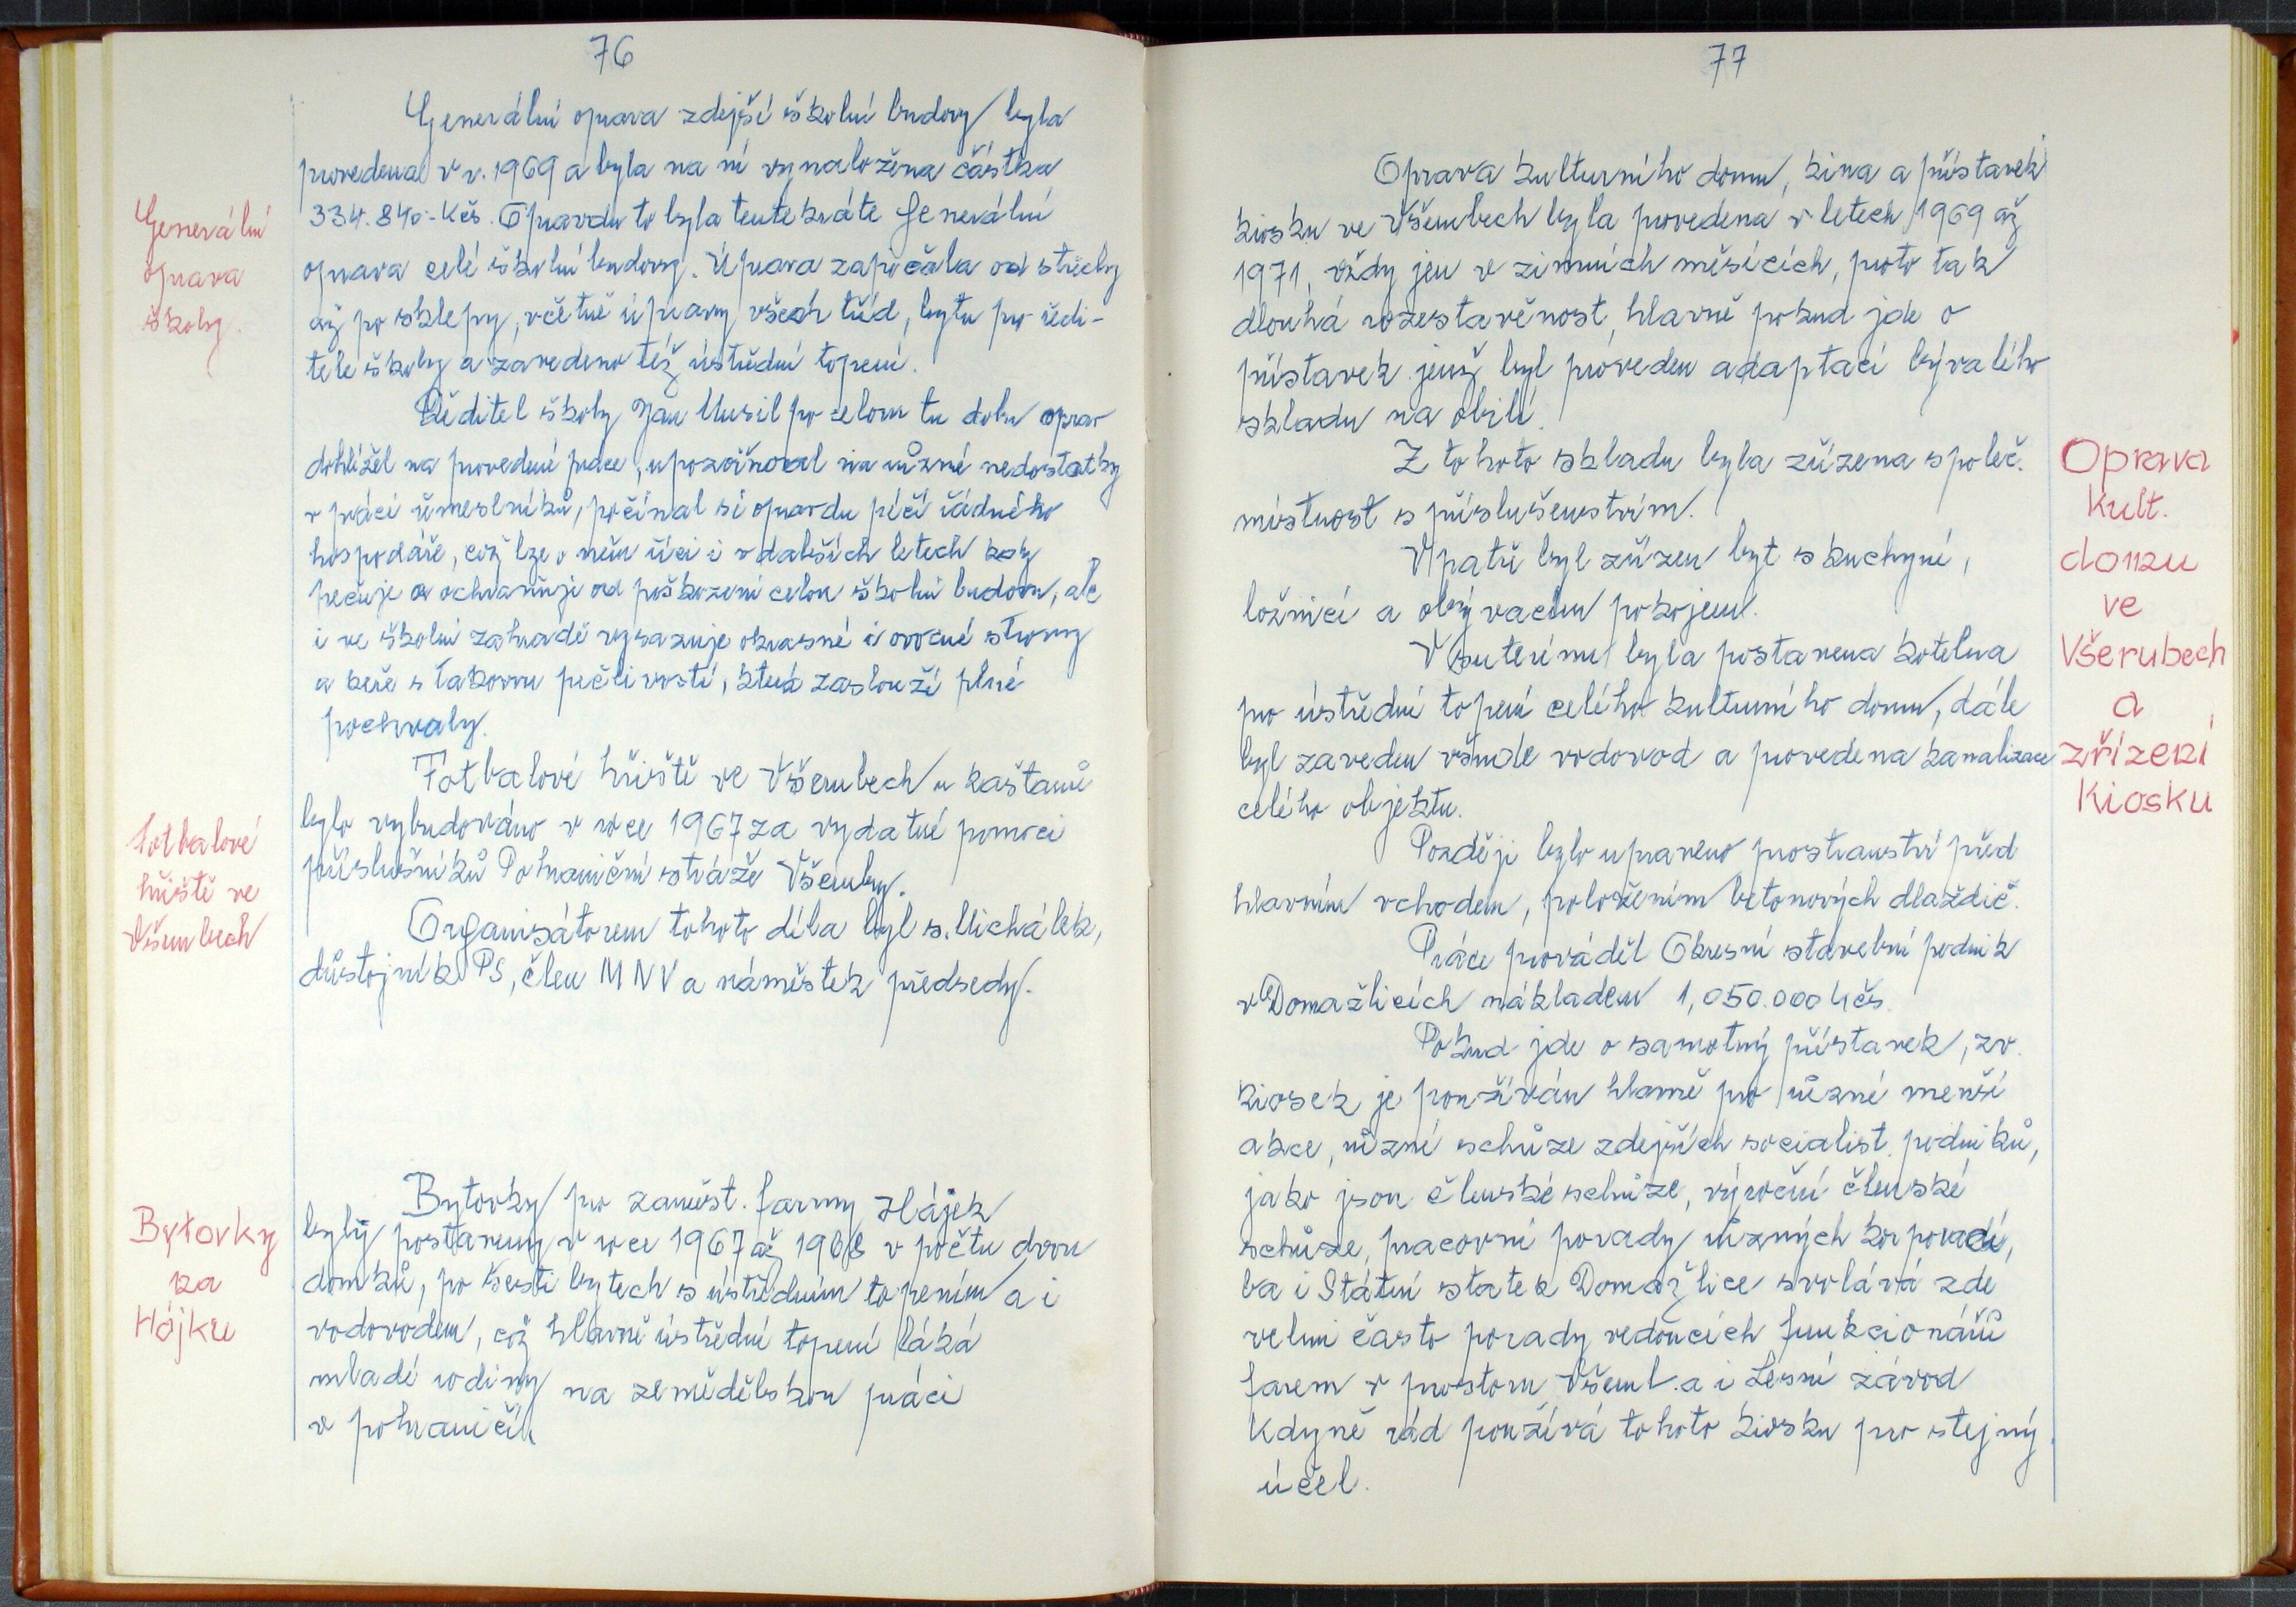 76
Generální oprava zdejší školní budovy byla
provedena v r. 1969 a byla na ní vynaložena částka
334.840.- Kčs. Opravdu to byla tentekráte generální
oprava celé školní budovy. Úprava započala od střechy
až po sklepy, včetně úpravy všech tříd, bytu pro ředi-
tele školy a zavedeno též ústřední topení.
Ředitel školy Jan Musil po celou tu dobu oprav
dohlížel na provedení práce, upozorňoval na různé nedostatky
v práci řmeslníků, počínal si opravdu péčí řádného
hospodáře, což lze o něm říci i v dalších letech kdy
pečuje a ochraňuje od poškození celou školní budovu, ale
i ve školní zahradě vysazuje okrasné i ovocné stromy
a keře s takovou pečlivostí, která zaslouží plné
pochvaly.
Fotbalové hřiště ve Všerubech u kaštanů
bylo vybudováno v roce 1967 za vydatné pomoci
příslušníků Pohraniční stráže Všeruby.
Organisátorem tohoto díla byl s. Michálek,
důstojník PS, člen MNV a náměstek předsedy.
Bytovky pro zaměst. farmy Hájek
byly postaveny v roce 1967 až 1968 v počtu dvou
domků, po šesti bytech s ústředním topením a i
vodovodem, což hlavně ústřední topení láká
mladé rodiny na zemědělskou práci
v pohraničí.
Generální
oprava
školy.
Fotbalové
hřiště ve
Všerubech
Bytovky
na
Hájku
77
Oprava kulturního domu, kina a přístavek
kiosku ve Všerubech byla provedena v letech 1969 až
1971, vždy jen v zimních měsících, proto tak
dlouhá rozestavěnost, hlavně pokud jde o
přístavek jenž byl proveden adaptací bývalého
skladu na obilí.
Z tohoto skladu byla zřízena společ.
místnost s příslušenstvím.
V patře byl zřízen byt s kuchyní,
ložnicí a obývacím pokojem.
V suterénu byla postavena kotelna
pro ústřední topení celého kulturního domu, dále
byl zaveden všude vodovod a provedena kanalizace
celého objektu.
Později bylo upraveno prostranství před
hlavním vchodem, položením betonových dlaždic.
Práce prováděl Okresní stavební podnik
v Domažlicích nákladem 1,050.000 Kčs.
Pokud jde o samotný přístavek, zv.
kiosek je používán hlavně pro různé menší
akce, různé schůze zdejších socialist. podniků,
jako jsou členské schůze, výroční členské
schůze, pracovní porady různých korporací,
ba i Státní statek Domažlice svolává zde
velmi často porady vedoucích funkcionářů
farem v prostoru Všerub. a i Lesní závod
Kdyně rád používá tohoto kiosku pro stejný
účel.
Oprava
Kult.
domu
ve
Všerubech
a
zřízení
Kiosku